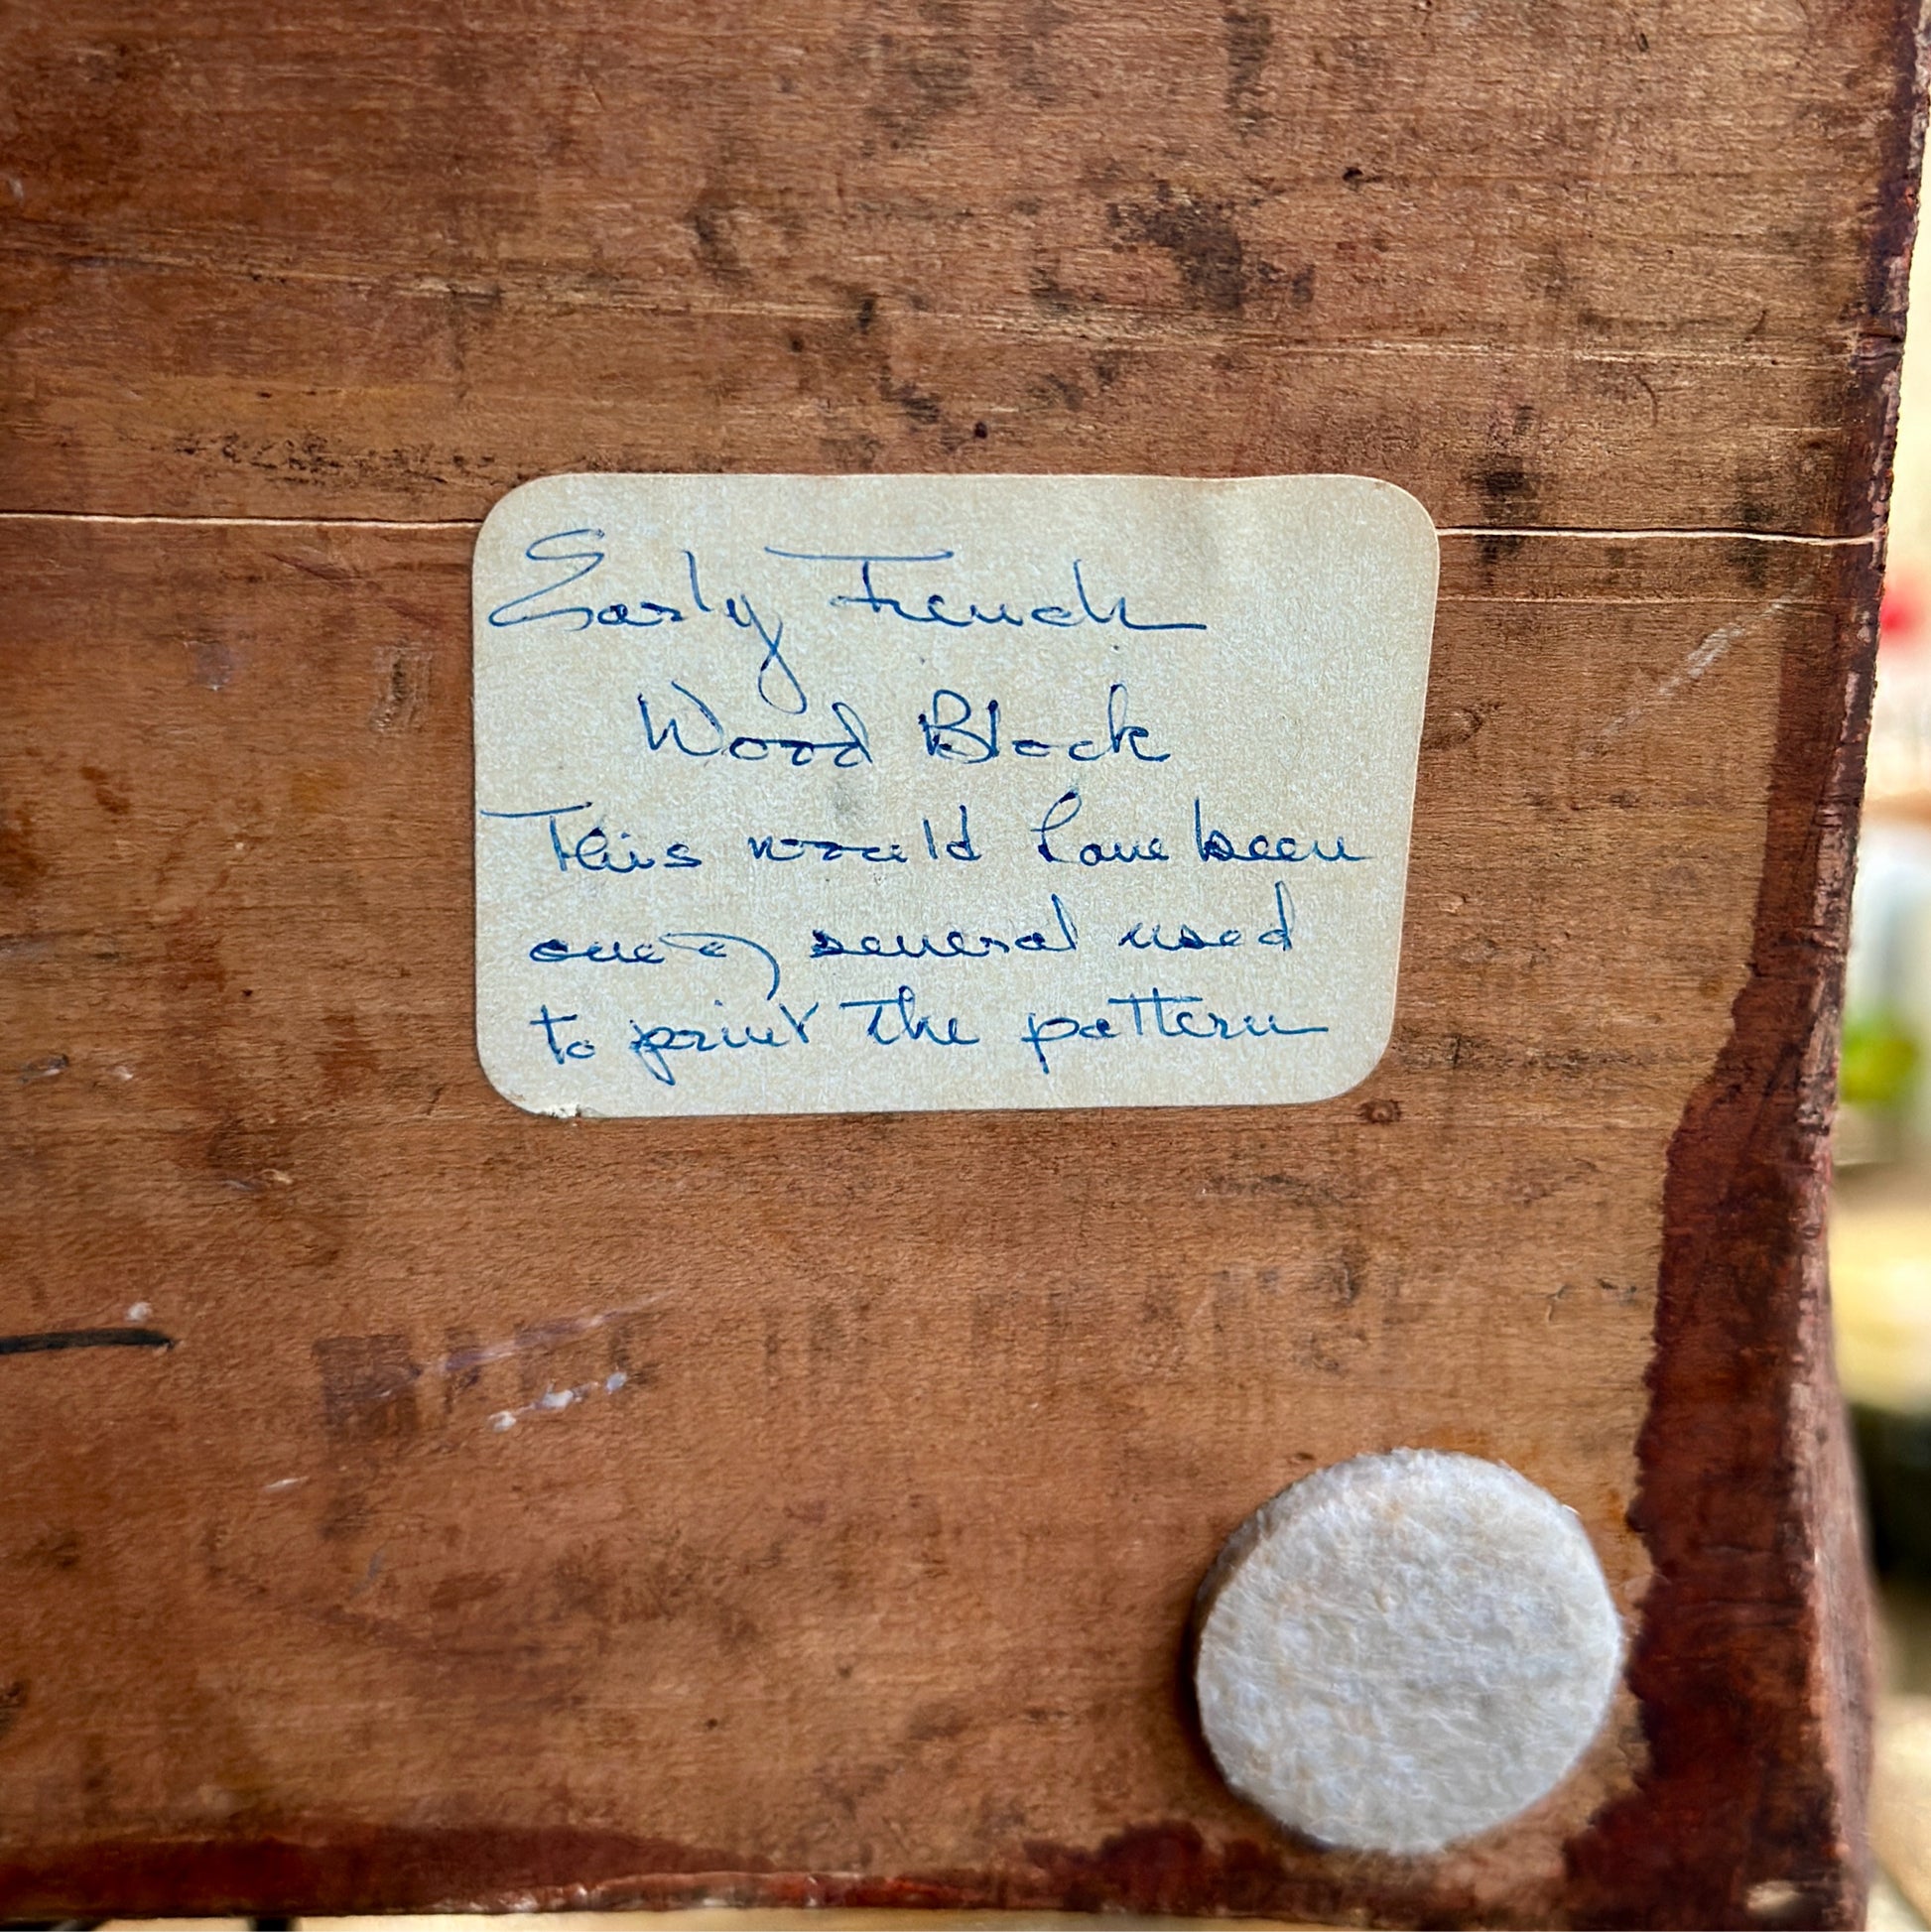 Early French
Wood Block
This would have been
one of several used
to print the pattern